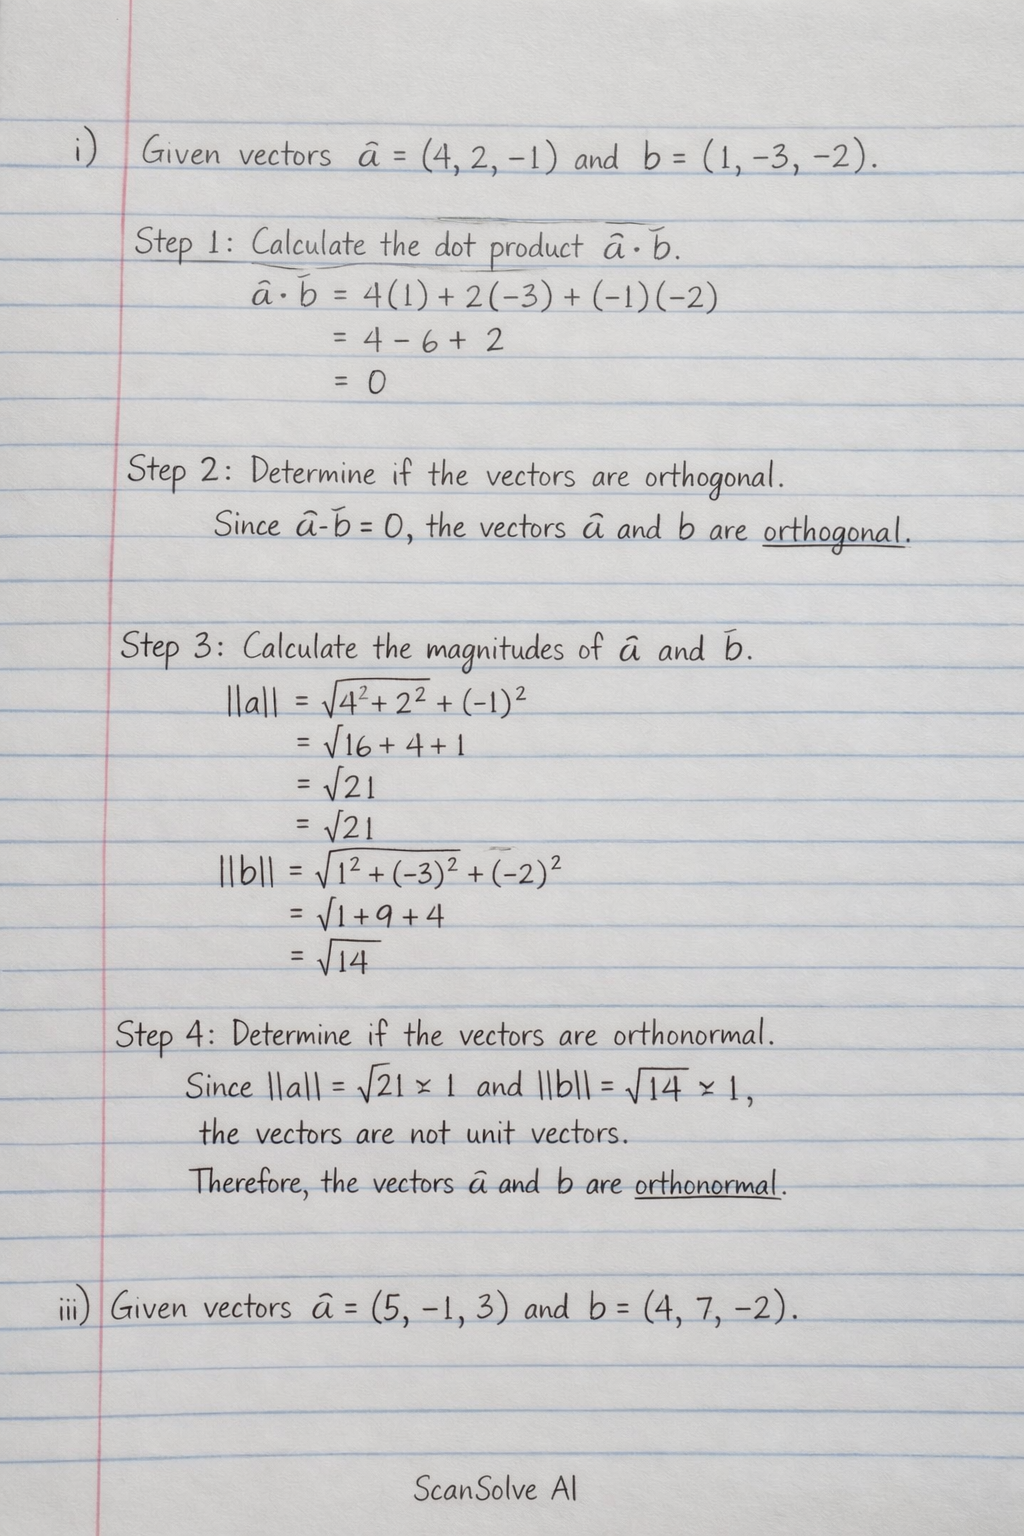 i) Given vectors ā = (4, 2, -1) and b = (1, -3, -2).
Step 1: Calculate the dot product ā · b̄.
ā · b̄ = 4(1) + 2(-3) + (-1)(-2)
= 4 - 6 + 2
= 0
Step 2: Determine if the vectors are orthogonal.
Since ā-b̄ = 0, the vectors ā and b are orthogonal.
Step 3: Calculate the magnitudes of ā and b̄.
||a|| = √4² + 2² + (-1)²
= √16 + 4 + 1
= √21
= √21
||b|| = √1² + (-3)² + (-2)²
= √1 + 9 + 4
= √14
Step 4: Determine if the vectors are orthonormal.
Since ||a|| = √21 ≚ 1 and ||b|| = √14 ≚ 1,
the vectors are not unit vectors.
Therefore, the vectors ā and b are orthonormal.
iii) Given vectors ā = (5, -1, 3) and b = (4, 7, -2).
ScanSolve AI